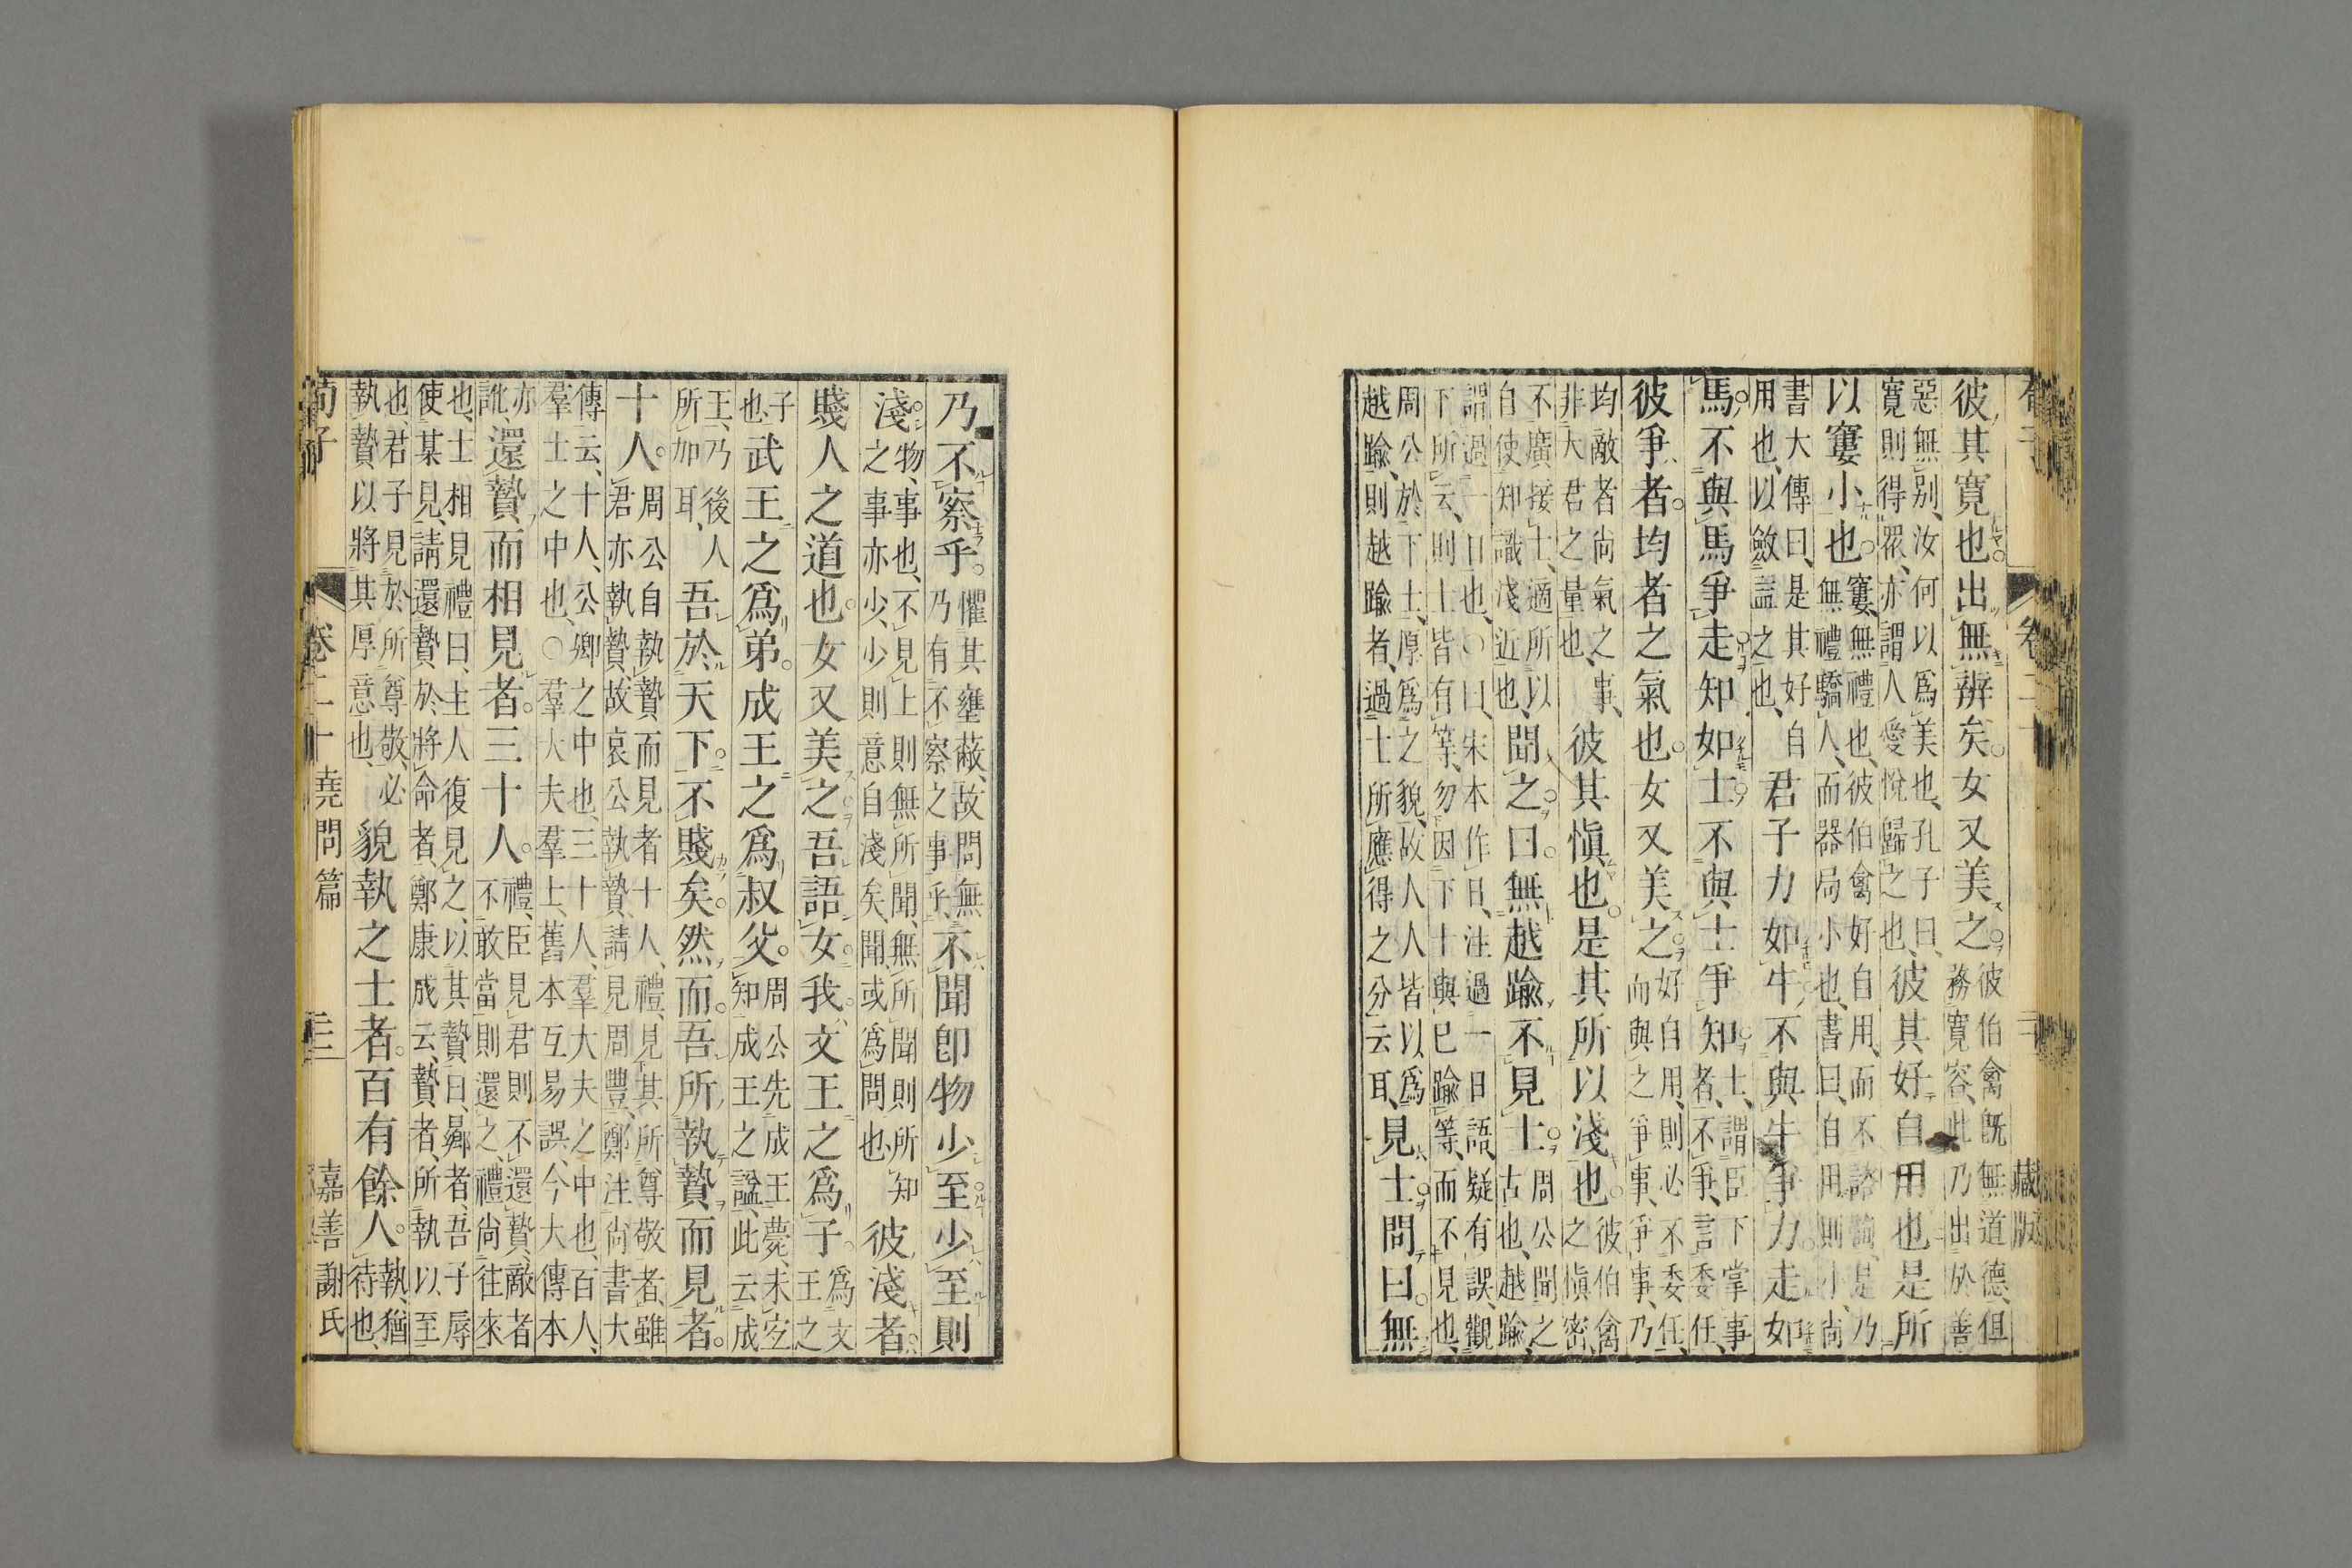 卷二十 三 藏版
彼其寛也。出無辨矣。女又美之。彼伯禽旣無道德、但務寛容、此乃出於善
惡無別、汝何以爲美也、孔子曰、寛則得衆、亦謂人愛悅歸之也、彼其好自用也是所
以窶小也。窶、無禮也、彼伯禽好自用、而不諮詢、是乃無禮驕人、而器局小也、書曰、自用則小、尚
書大傳曰、是其好自用也、以斂益之也、君子力如牛不與牛爭力。走如
馬。不與馬爭走。知如士。不與士爭知。士、謂臣下掌事者、不爭、言委任、
彼爭者。均者之氣也。女又美之。好自用、則必不委任、而與之爭事、爭事、乃
均敵者尚氣之事、非大君之量也、彼其愼也。是其所以淺也。彼伯禽之愼密、
不廣接士、適所以自使知識淺近也、聞之。曰。無越踰不見士。周公聞之古也、越踰、
謂過一日也、○曰、宋本作日、注過一日語、疑有誤、觀下所云、則士皆有等、勿因下士與已踰等、而不見也、
周公於下士、厚爲之貌、故人人皆以爲越踰、則越踰者、過士所應得之分云耳、見士。問曰。無
乃不察乎。懼其壅蔽、故問無乃有不察之事乎、不聞卽物少至。少至則
淺。物、事也、不見上則無所聞、無所聞則所知之事亦少、少則意自淺矣、聞、或爲問也、彼淺者。
賤人之道也。女又美之。吾語女。我文王之爲子。爲文王之
子也、武王之爲弟。成王之爲叔父。周公先成王薨、未空知成王之諡、此云成
王、乃後人所加耳、吾於天下。不賤矣。然而。吾所執贄而見者。
十人。周公自執贄而見者十人、禮、見其所尊敬者、雖君亦執贄、故哀公執贄、請見周豐、鄭注尚書大
傳云、十人、公卿之中也、三十人、羣大夫之中也、百人、羣士之中也、○羣大夫羣士、舊本互易誤、今大傳本
亦訛、還贄而相見者。三十人。禮、臣見君則不還贄、敵者不敢當則還之、禮尚往來
也、士相見禮曰、主人復見之、以其贄曰、曏者、吾子辱使某見、請還贄於將命者、鄭康成云、贄者、所執以至
也、君子見於所尊敬、必執贄以將其厚意也、貌執之士者。百有餘人。執、猶待也、
荀子 卷二十 堯問篇 三 嘉善謝氏